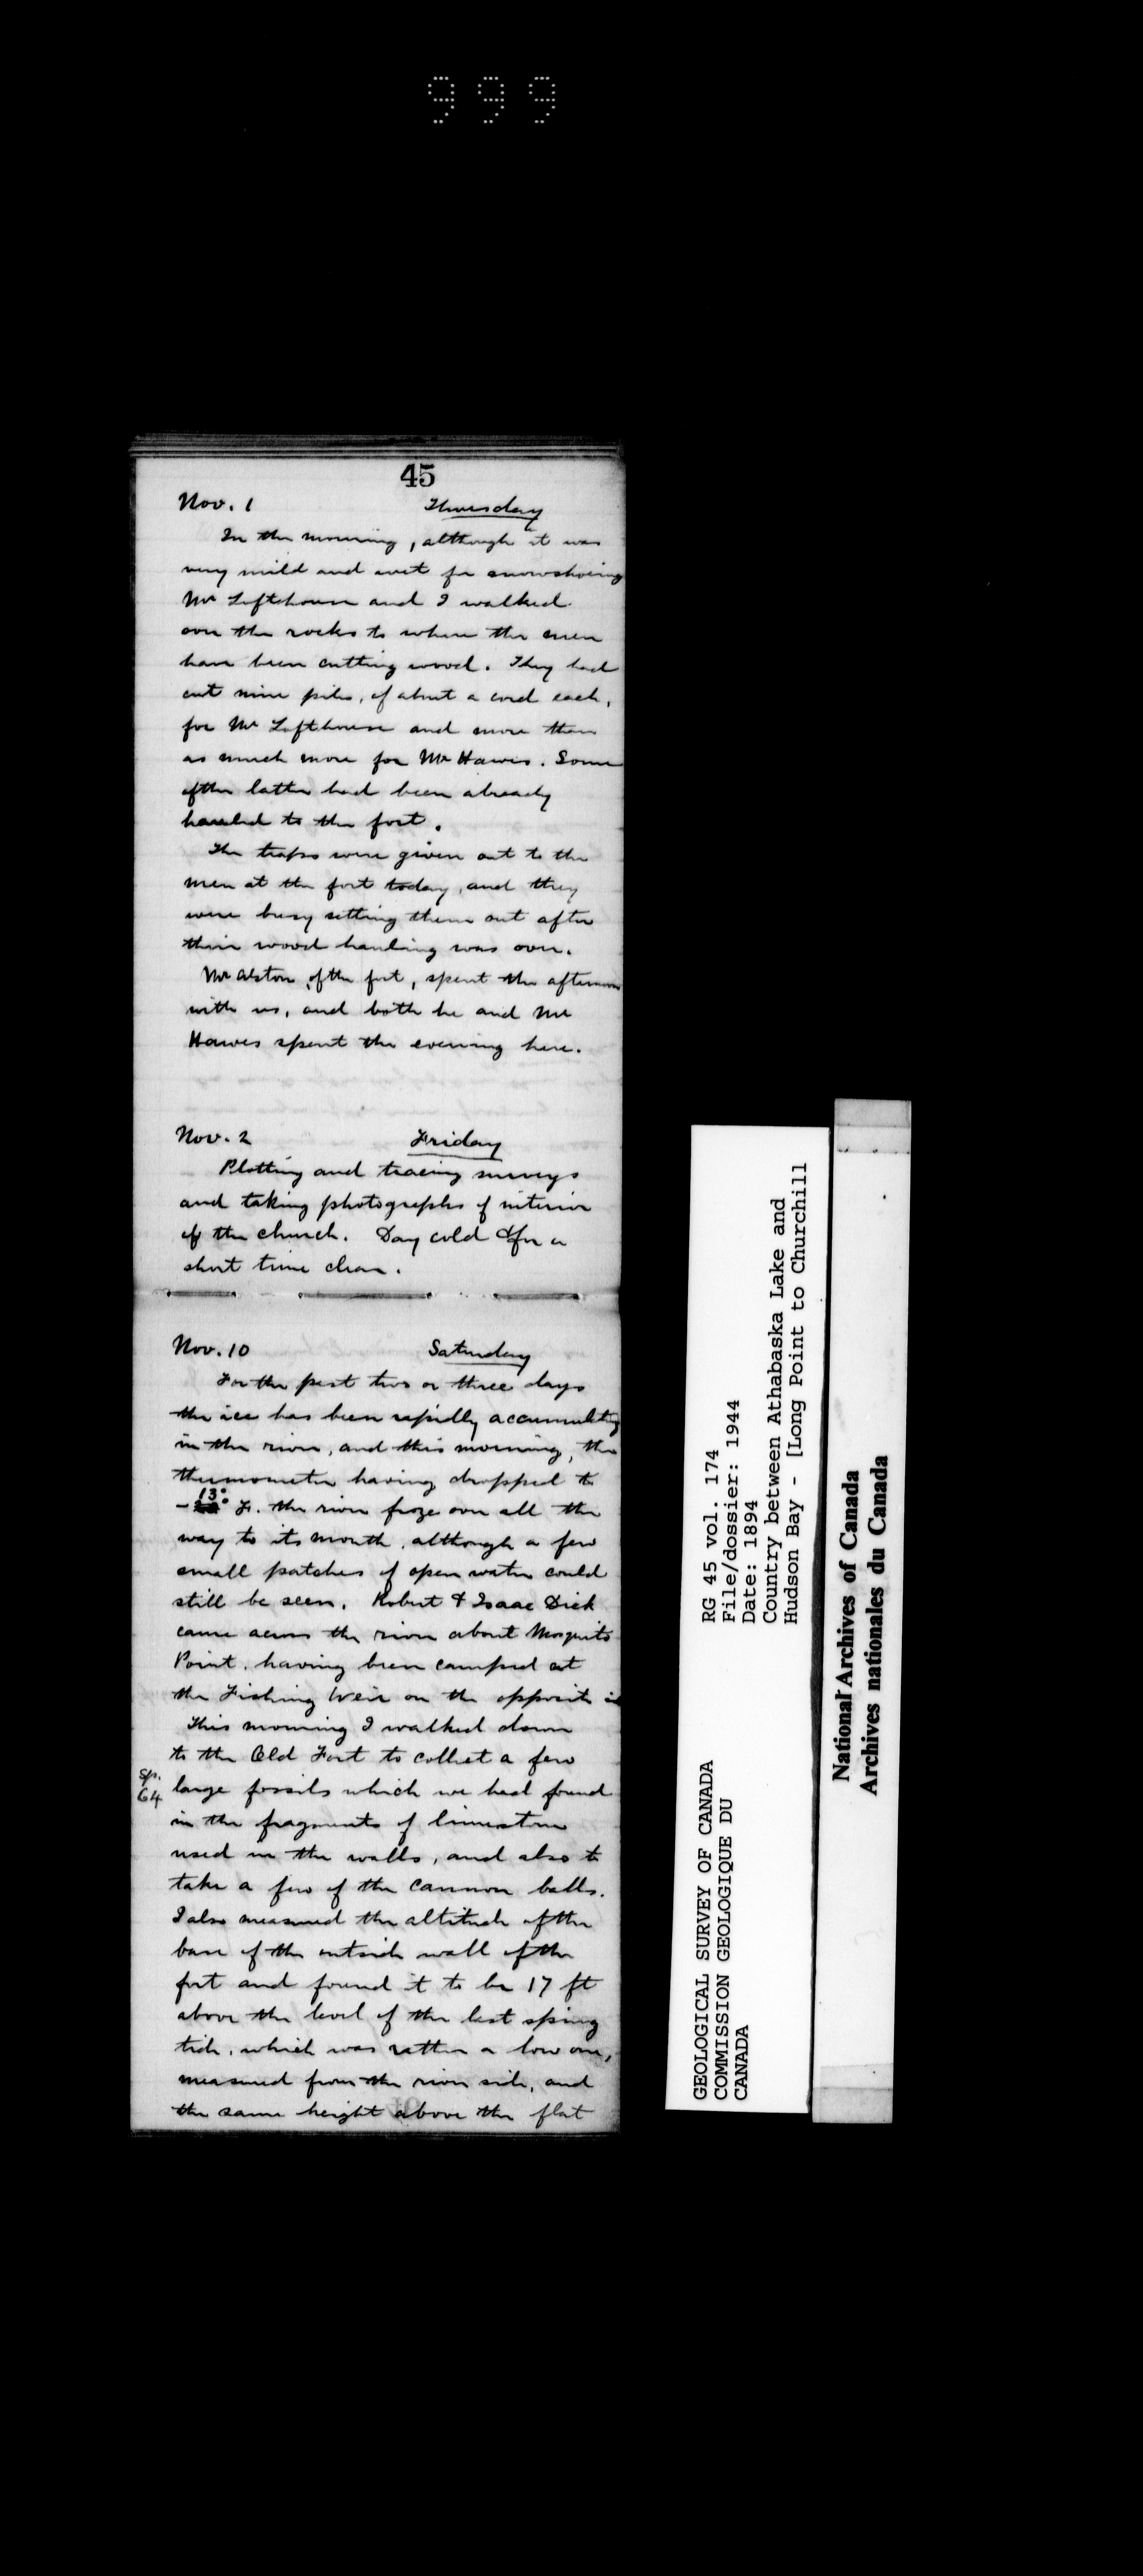 999
45
Nov. 1 Thursday
In the morning, although it was
very mild and wet for snowshoeing
Mr Lofthouse and I walked
over the rocks to where the men
have been cutting wood. They had
cut nine piles, of about a cord each,
for Mr Lofthouse and more than
as much more for Mr Hawes. Some
of the latter had been already
hauled to the fort.
The traps were given out to the
men at the fort today, and they
were busy setting them out after
their wood hauling was over.
Mr Alston, of the fort, spent the afternoon
with us, and both he and Mr
Hawes spent the evening here.
Nov. 2 Friday
Plotting and tracing surveys
and taking photographs of interior
of the church. Day cold & for a
short time clear.
Nov. 10 Saturday
For the past two or three days
the ice has been rapidly accumulating
in the river, and this morning, the
thermometer having dropped to
- 13° F. the river froze over all the
way to its mouth, although a few
small patches of open water could
still be seen. Robert & Isaac Dick
came across the river about Mosquito
Point, having been camped at
the Fishing Weir on the opposite
This morning I walked down
to the Old Fort to collect a few
sp. 64
large fossils which we had found
in the fragments of limestone
used in the walls, and also to
take a few of the cannon balls.
I also measured the altitude of the
base of the outside wall of the
fort and found it to be 17 ft
above the level of the last spring
tide, which was rather a low one,
measured from the river side, and
the same height above the flat
GEOLOGICAL SURVEY OF CANADA
COMMISSION GEOLOGIQUE DU
CANADA
RG 45 vol. 174
File/dossier: 1944
Date: 1894
Country between Athabaska Lake and
Hudson Bay - [Long Point to Churchill
National Archives of Canada
Archives nationales du Canada